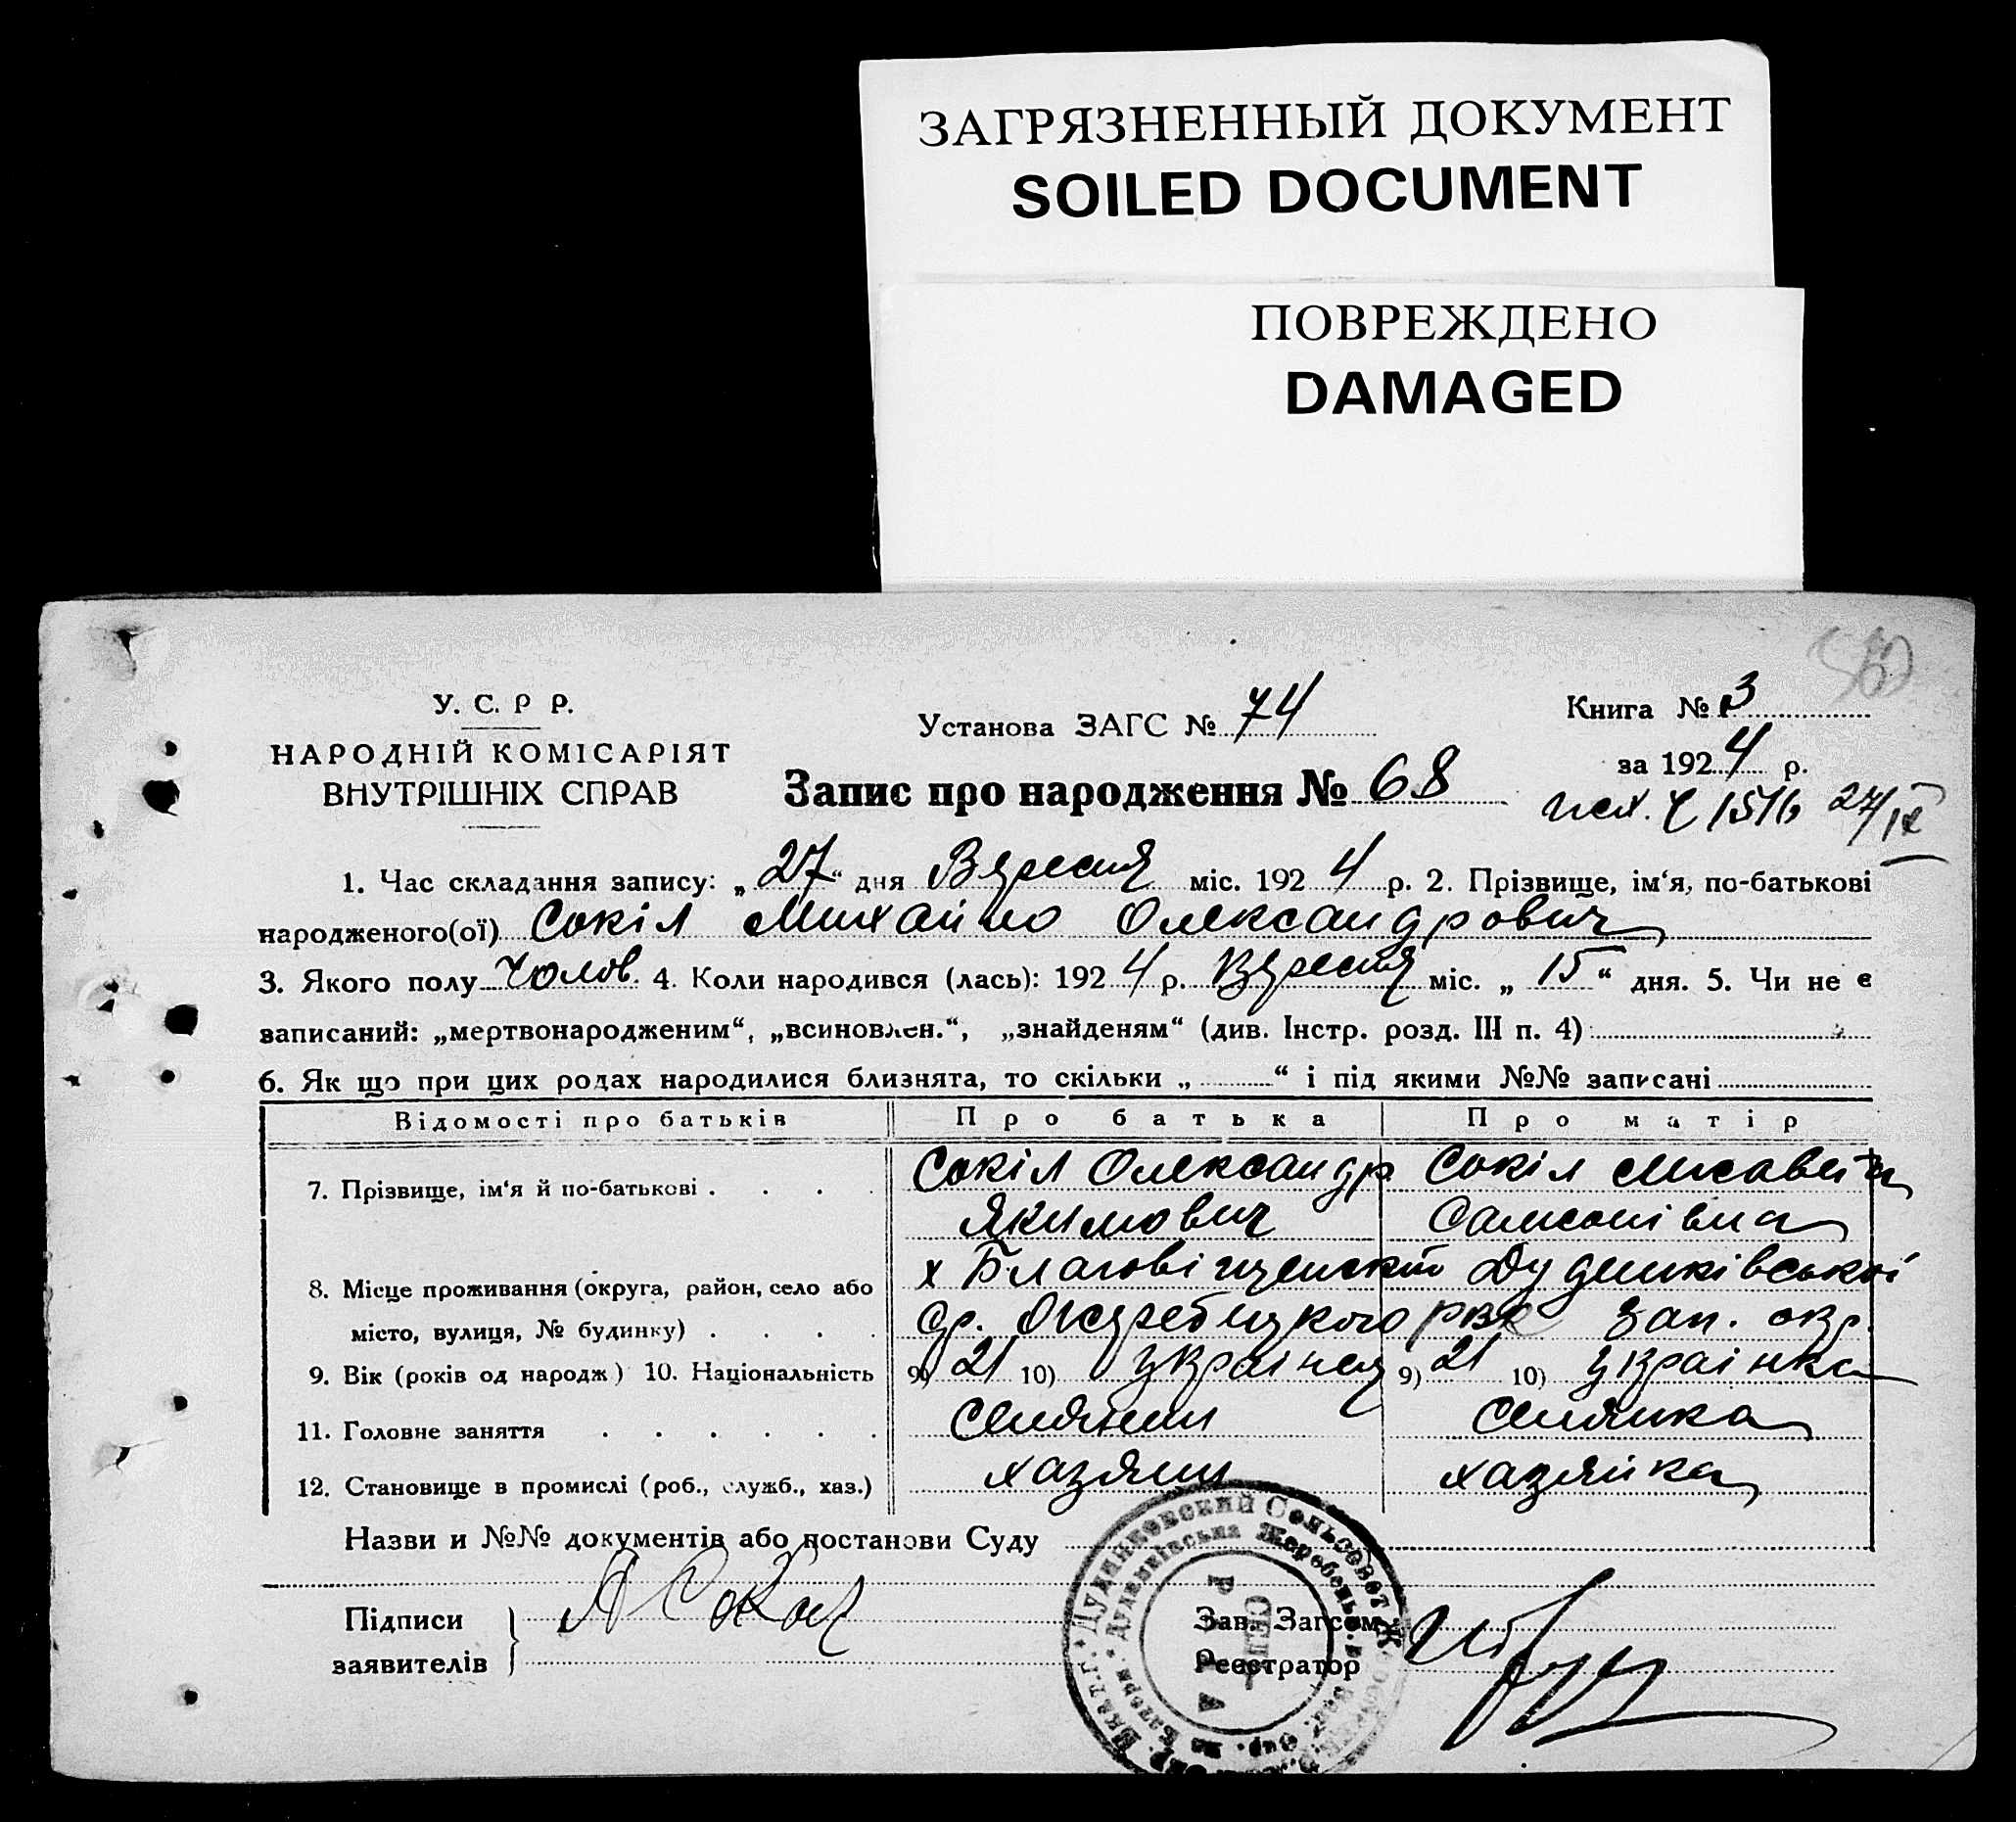 ЗАГРЯЗНЕННЫЙ ДОКУМЕНТ
SOILED DOCUMENT
ПОВРЕЖДЕНО
DAMAGED
У. С. Р Р.
НАРОДНІЙ КОМІСАРІЯТ
ВНУТРІШНІХ СПРАВ
Установа ЗАГС № 74
Книга № 3
за 1924 р.
Запис про народження № 68
1516 27/IX
1. Час складання запису: „27“ дня Вересня міс. 1924 р. 2. Прізвище, ім'я, по-батькові
народженого(ої) Сокіл Михайло Олександрович
3. Якого полу Чолов. 4. Коли народився (лась): 1924 р. Вересня міс. „15“ дня. 5. Чи не є
записаний: „мертвонародженим“, „всиновлен.“, „знайденям“ (див. Інстр. розд. III п. 4)
6. Як що при цих родах народилися близнята, то скільки „ “ і під якими №№ записані
Відомості про батьків Про батька Про матір
7. Прізвище, ім'я й по-батькові . . . . Сокіл Олександр Сокіл Лисавета
Якимович Самсонівна
8. Місце проживання (округа, район, село або х Благовіщенский Дудниківської
місто, вулиця, № будинку) . . . . Ср. Жеребецкого рвк Зап. окр.
9. Вік (років од народж) 10. Національність 9) 21 10) Українец 9) 21 10) Українка
11. Головне заняття . . . . . . Селянин Селянка
12. Становище в промислі (роб., служб., хаз.) хазяин хазяйка
Назви и №№ документів або постанови Суду
Підписи
заявителів
А Сокол
Зав. Загсом
Реєстратор
Дудниковский Сельсовет